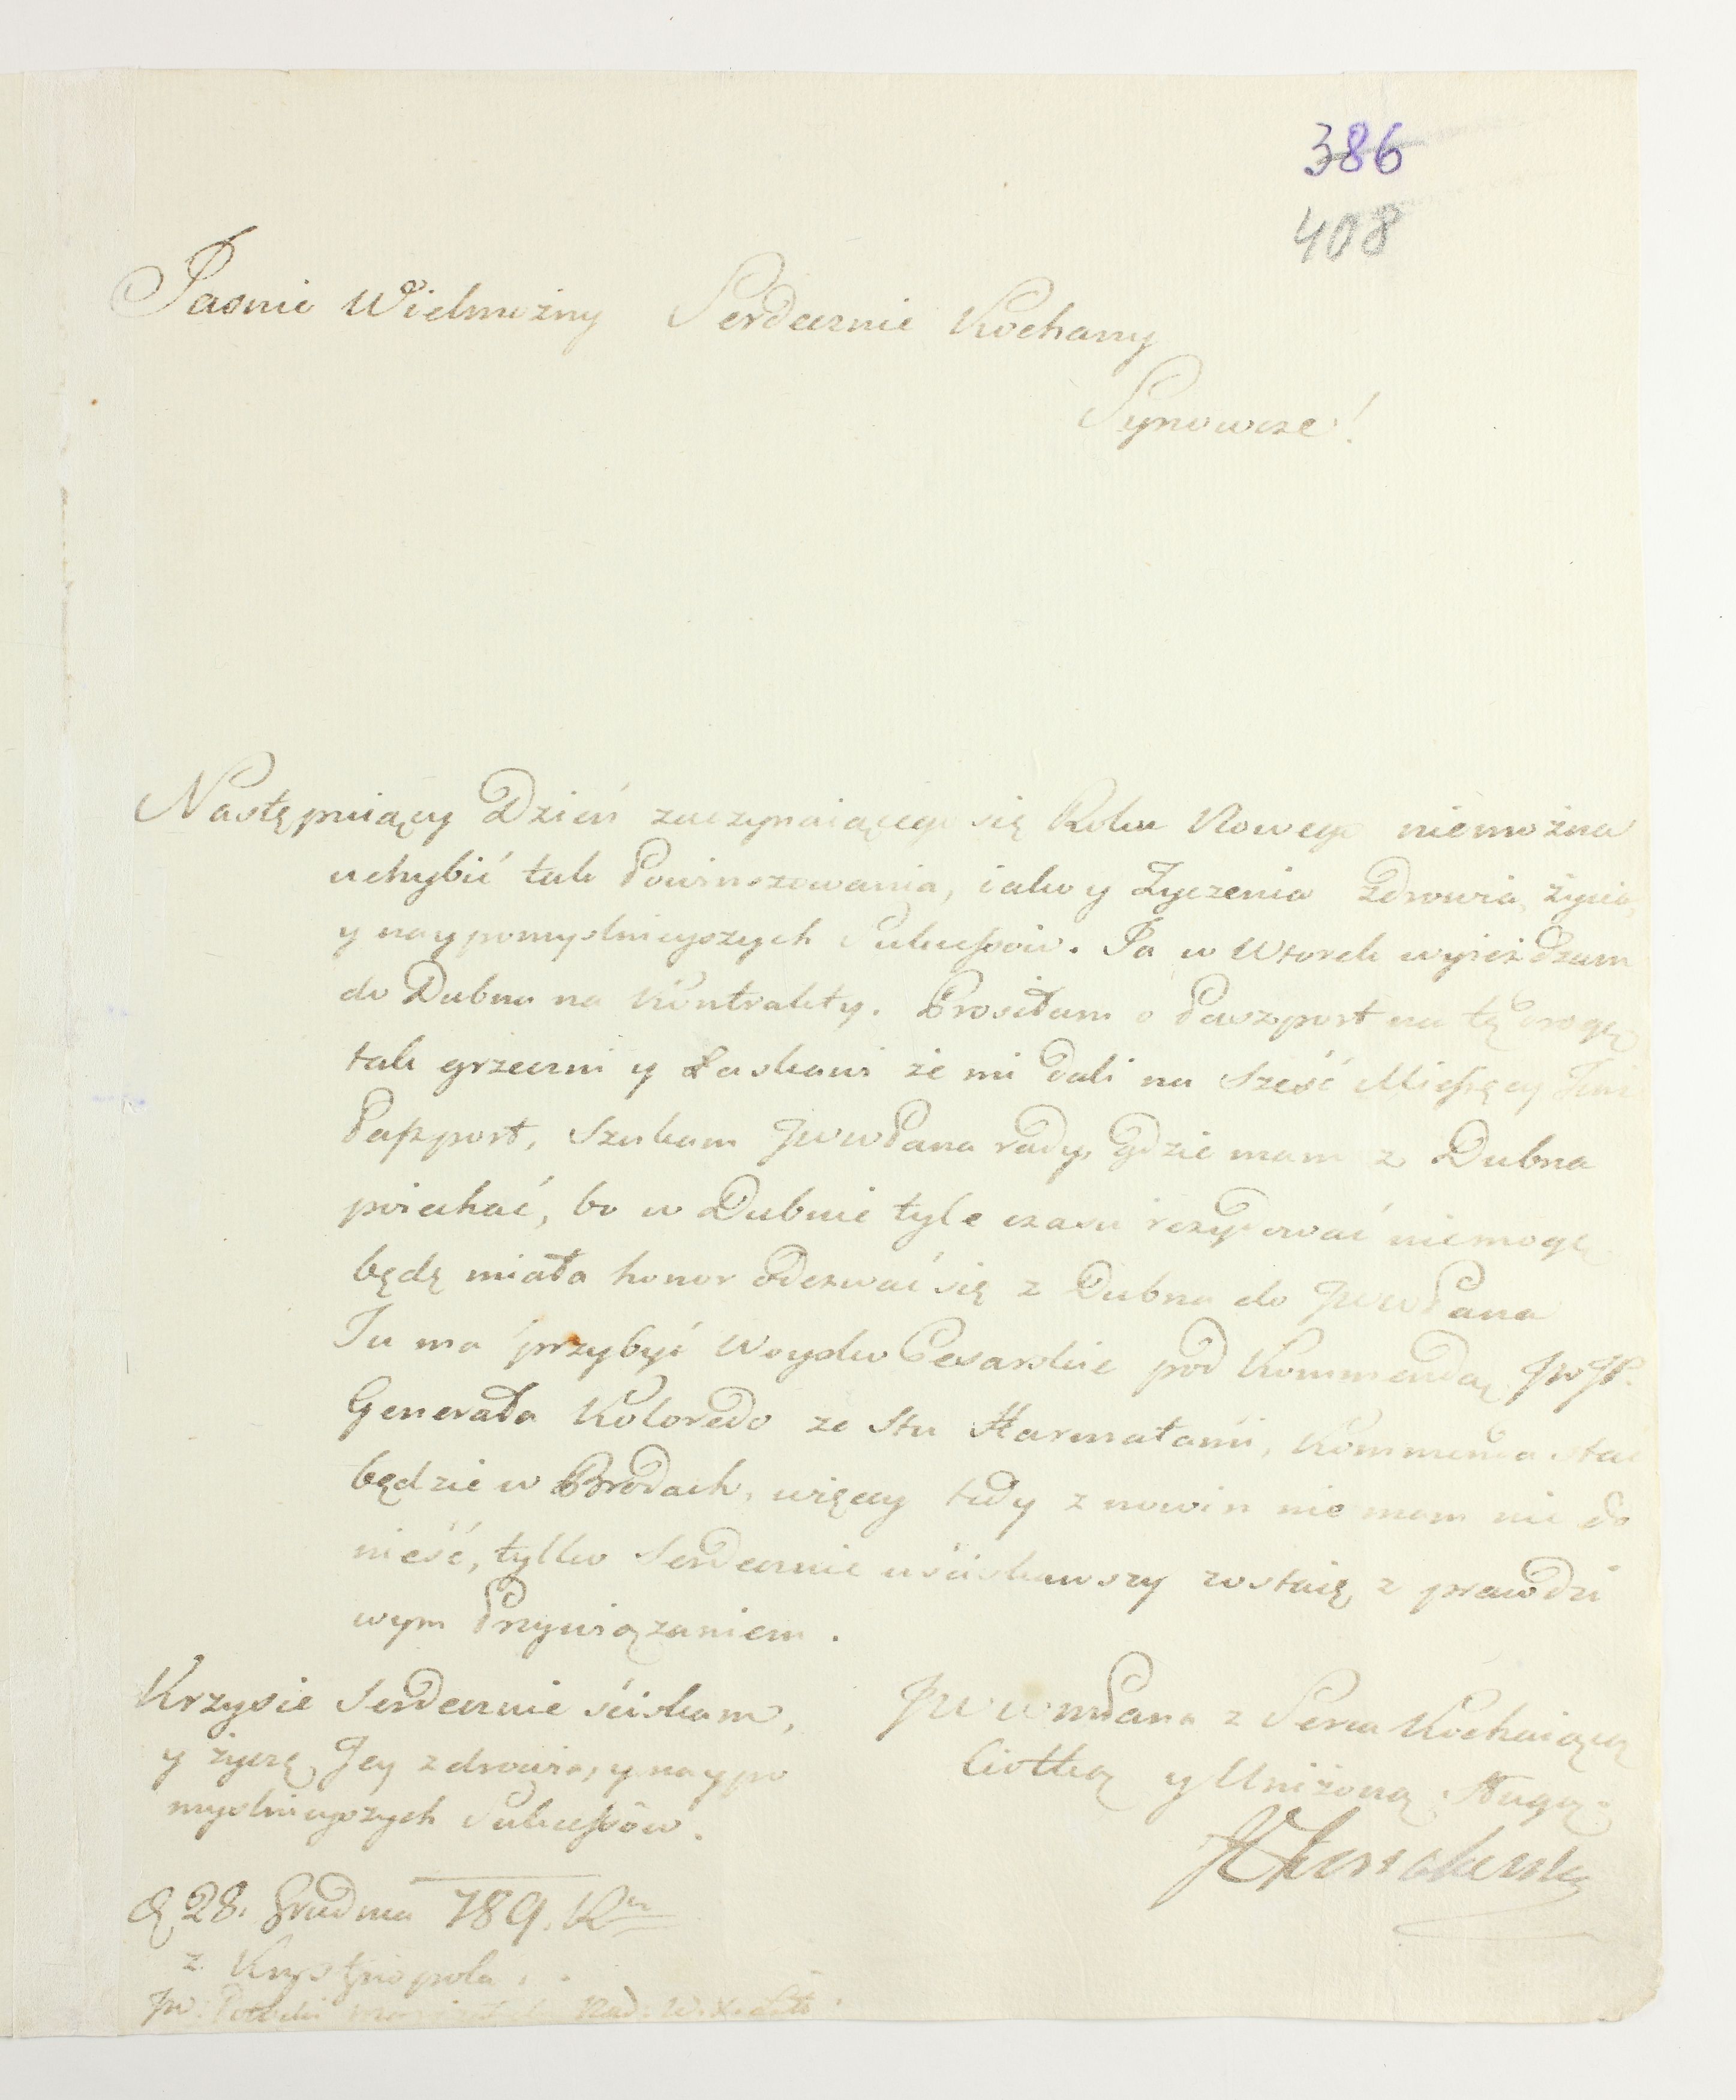 386
408
Jasnie Wielmożny Serdecznie Kochany
Synowcze!
Następuiący Dzień zaczynaiącego się Roku Nowego niemożna
uchybić tak Powinszowania, iako y Zyczenia Zdrowia, życia,
y naypomyslnieyszych Sukcessów. Ja w Wtorek wyieżdzam
do Dubna na Kontrakty. Prosiłam o Paszport na tę drogę
tak grzeczni y Łaskawi że mi dali na Sześć Miesięcy
Paszport, Szukam JWWPana rady, gdzie mam z Dubna
poiechać, bo w Dubnie tyle czasu rezydować niemogę
będę miała honor odezwać się z Dubna do JWWPana
Tu ma przybyć Woysko Cesarskie pod Kommendą JWJP.
Generała Koloredo ze Stu Harmatami, Kommenda stać
będzie w Brodach, więcey tedy z nowin nie mam nic do
nieść, tylko Serdecznie uściskawszy zostaię z prawdzi
wym Przywiązaniem.
Krzysie Serdecznie ściskam,
y życzę Jey zdrowia, y naypo
myslnieyszych Sukcessów.
JWWmPana z Serca Kochaiącą
Ciotką y Uniżoną Sługą
d 28. Grudnia 789. Ru
z Krystynopola.
JW. Potocki